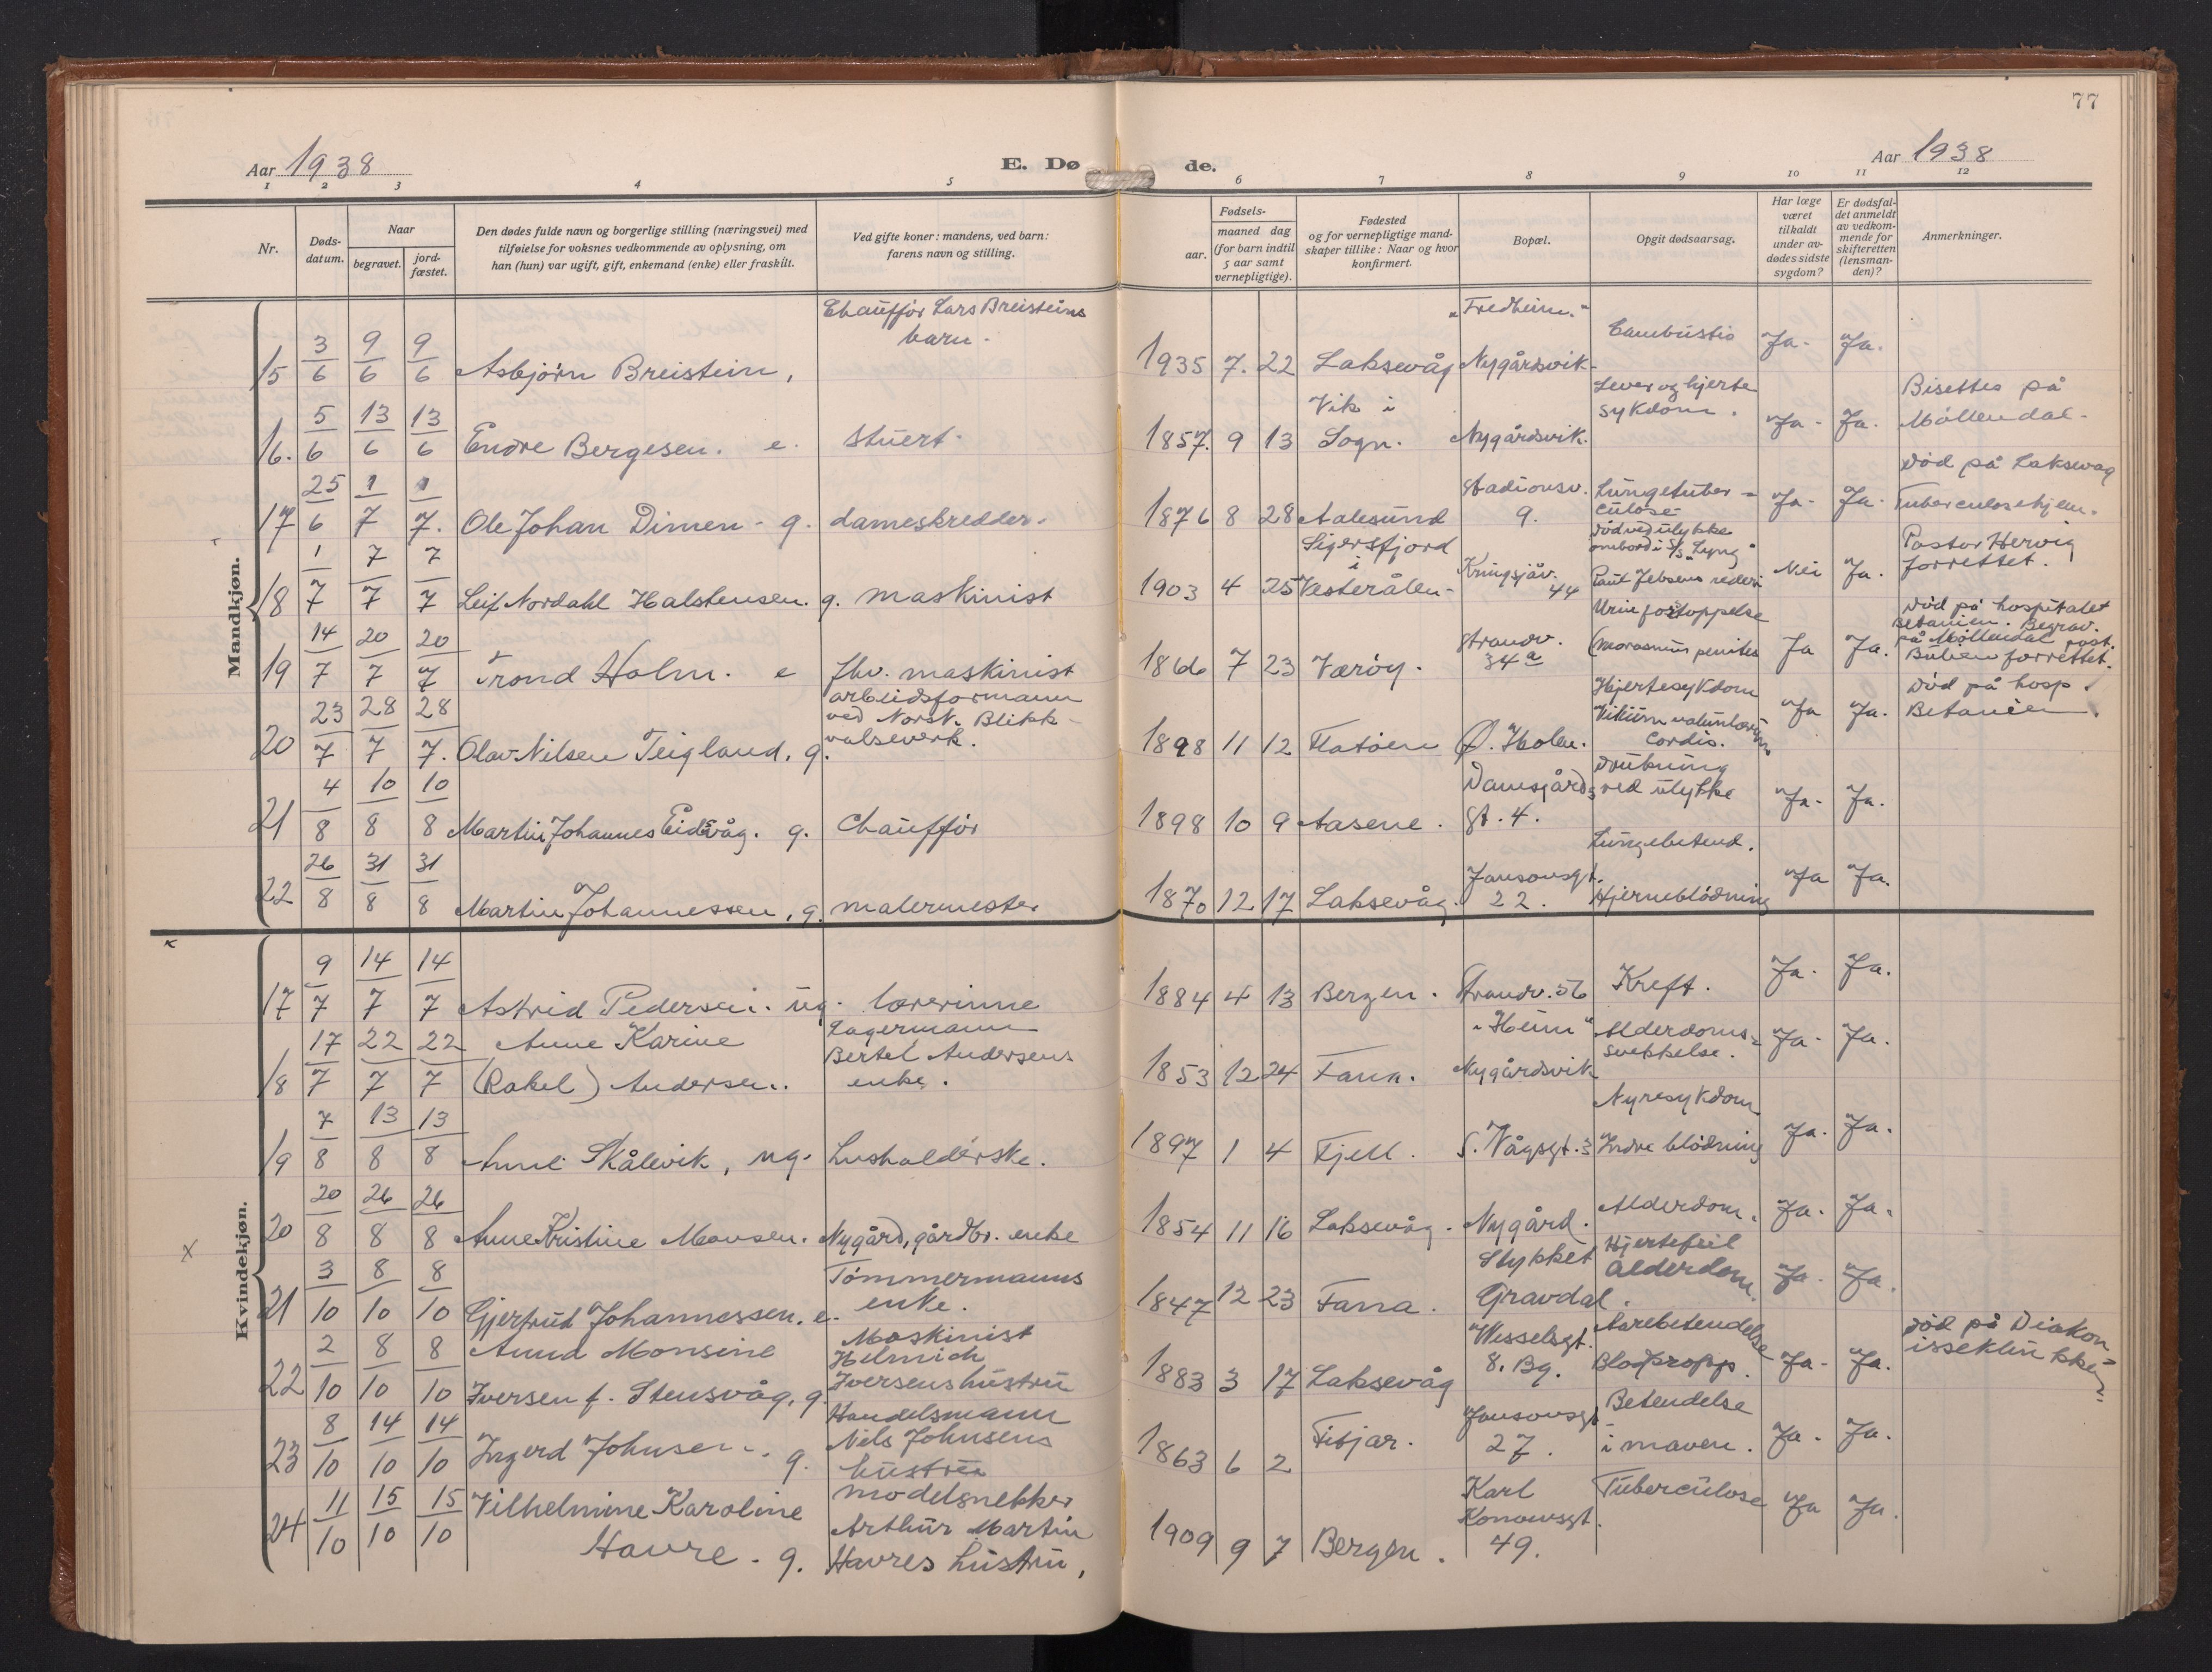 77
Aar 1938
E. Dø de.
Aar 1938
1 2 3 4 5 6 7 8 9 10 11 12
Nr.
Døds-
datum.
Naar
begravet.
jord-
fæstet.
Den dødes fulde navn og borgerlige stilling (næringsvei) med
tilføielse for voksnes vedkommende av oplysning, om
han (hun) var ugift, gift, enkemand (enke) eller fraskilt.
Ved gifte koner: mandens, ved barn:
farens navn og stilling.
Fødsels-
aar.
maaned dag
(for barn indtil
5 aar samt
vernepligtige).
Fødested
og for vernepligtige mand-
skaper tillike: Naar og hvor
konfirmert.
Bopæl.
Opgit dødsaarsag.
Har læge
været
tilkaldt
under av-
dødes sidste
sygdom?
Er dødsfal-
det anmeldt
av vedkom-
mende for
skifteretten
(lensman-
den)?
Anmerkninger.
Mandkjøn.
15 3/6 9/6 9/6 Asbjørn Breistein,
Chauffør Lars Breisteins
barn.
1935 7. 22 Laksevåg
"Fredheim."
Nygårdsvik.
Combustio
Ja. Ja.
16. 5/6 13/6 13/6 Endre Bergesen. e. Stuert.
1857. 9 13
Vik i
Sogn.
Nygårdsvik.
Lever og hjerte
sykdom.
Ja. Ja.
Bisettes på
Møllendal.
17 25/6 1/7 1/7. Ole Johan Dimen - g. dameskredder.
1876 8 28 Aalesund
Stadionsv.
9.
Lungetuber-
culose
Ja. Ja.
Død på Laksevåg
Tuberculosehjem.
18 1/7 7/7 7/7 Leif Nordahl Halstensen. g. maskinist
1903 4 25
Sigersfjord
i
Vesterålen.
Kringsjåv.
44
død ved ulykke
ombord i S/S "Lyng"
Paul Jebsens rederi
Nei Ja.
Pastor Hervig
forrettet.
19 14/7 20/7 20/7 Trond Holm. e fhv. maskinist
1866 7 23 Værøy.
Strandv.
34a
Urinforstoppelse
Ja Ja.
Død på hospitalet
Betanien. Begrav.
på Møllendal past.
forrettet.
20 23/7 28/7 28/7. Olav Nilsen Teigland, g.
arbeidsformann
ved Norsk. Blikk-
valseverk.
1898 11 12 Flatøen Ø. Holm.
Hjertesykdom
Vitium
cordis.
Ja Ja.
Død på hosp.
Betanien.
21 4/8 10/8 10/8 Martin Johannes Eidsvåg. g. Chauffør
1898 10 9 Aasene.
Damsgårds
gt. 4.
Drukning
ved ulykke
Ja. Ja.
22 26/8 31/8 31/8 Martin Johannessen, g. malermester
1870 12 17 Laksevåg.
Jansonsgt.
22.
Lungebetend.
Hjerneblødning
Ja Ja.
Kvindekjøn.
17 9/7 14/7 14/7 Astrid Pedersen. ug. lærerinne
1884 4 13 Bergen. Strandv. 56 Kreft. Ja. Ja.
18 17/7 22/7 22/7
Anne Karine
(Rakel) Andersen.
Lagermann
Bertel Andersens
enke.
1853 12 24 Fana.
"Heim"
Nygårdsvik
Alderdoms-
svekkelse.
Ja. Ja.
19 7/8 13/8 13/8 Anne Skålevik, ug. husholderske.
1897 1 4 Fjell. S. Vågsgt. 3
Nyresykdom
Indre blødning
Ja. Ja.
20 20/8 26/8 26/8 Anne Kristine Monsen. Nygård, gårdbr. enke
1854 11 16 Laksevåg. Nygård. Alderdom. Ja. Ja.
X
21 3/10 8/10 8/10 Gjertrud Johannessen. e.
Tømmermanns
enke.
1847 12 23 Fana.
Stykket
Gravdal.
Hjertefeil
Alderdom.
Ja. Ja.
22 2/10 8/10 8/10
Anna Monsine
Iversen f. Stensvåg, g.
Maskinist
Helmich
Iversens hustru
1883 3 17 Laksevåg
Wesselsgt.
8. Bg.
Aarebetendelse
Blodpropp.
Ja. Ja.
død på Diakon-
isseklinikken.
23 8/10 14/10 14/10 Ingerd Johnsen. g.
Handelsmann
Nils Johnsens
hustru
1863 6 2 Fitjar.
Jansonsgt
27.
Betendelse
i maven.
Ja. Ja.
24 11/10 15/10 15/10
Vilhelmine Karoline
Havre - g.
modelsnekker
Arthur Martin
Havres hustru,
1909 9 7 Bergen.
Karl
Konowsgt.
49.
Tuberculose
Ja Ja.